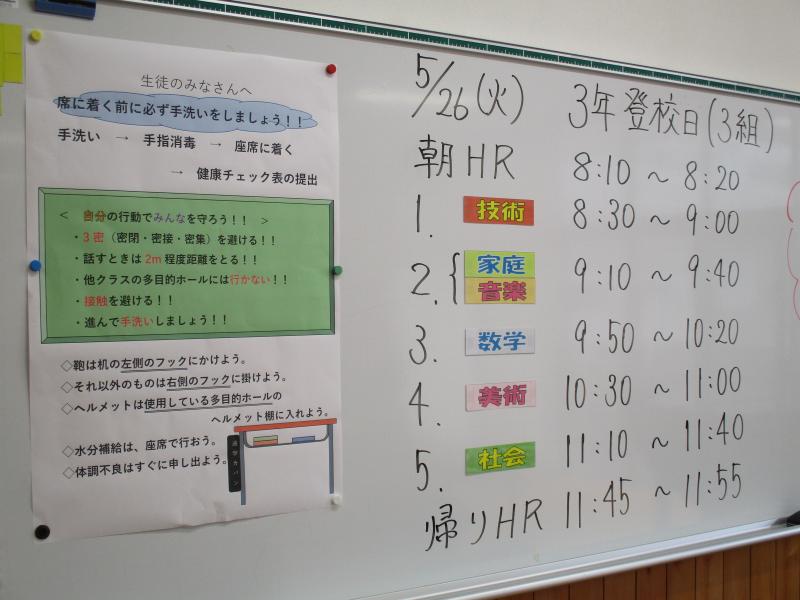 生徒のみなさんへ
席に着く前に必ず手洗いをしましょう！！
手洗い → 手指消毒 → 座席に着く
→ 健康チェック表の提出
＜ 自分の行動でみんなを守ろう！！ ＞
・3密（密閉・密接・密集）を避ける！！
・話すときは2m程度距離をとる！！
・他クラスの多目的ホールには行かない！！
・接触を避ける！！
・進んで手洗いしましょう！！
◇鞄は机の左側のフックにかけよう。
◇それ以外のものは右側のフックに掛けよう。
◇ヘルメットは使用している多目的ホールの
ヘルメット棚に入れよう。
◇水分補給は、座席で行おう。
◇体調不良はすぐに申し出よう。
通学カバン
5/26(火) 3年登校日(3組)
朝HR 8:10 ～ 8:20
1. 技術 8:30 ～ 9:00
2. { 家庭 音楽 9:10 ～ 9:40
3. 数学 9:50 ～ 10:20
4. 美術 10:30 ～ 11:00
5. 社会 11:10 ～ 11:40
帰りHR 11:45 ～ 11:55